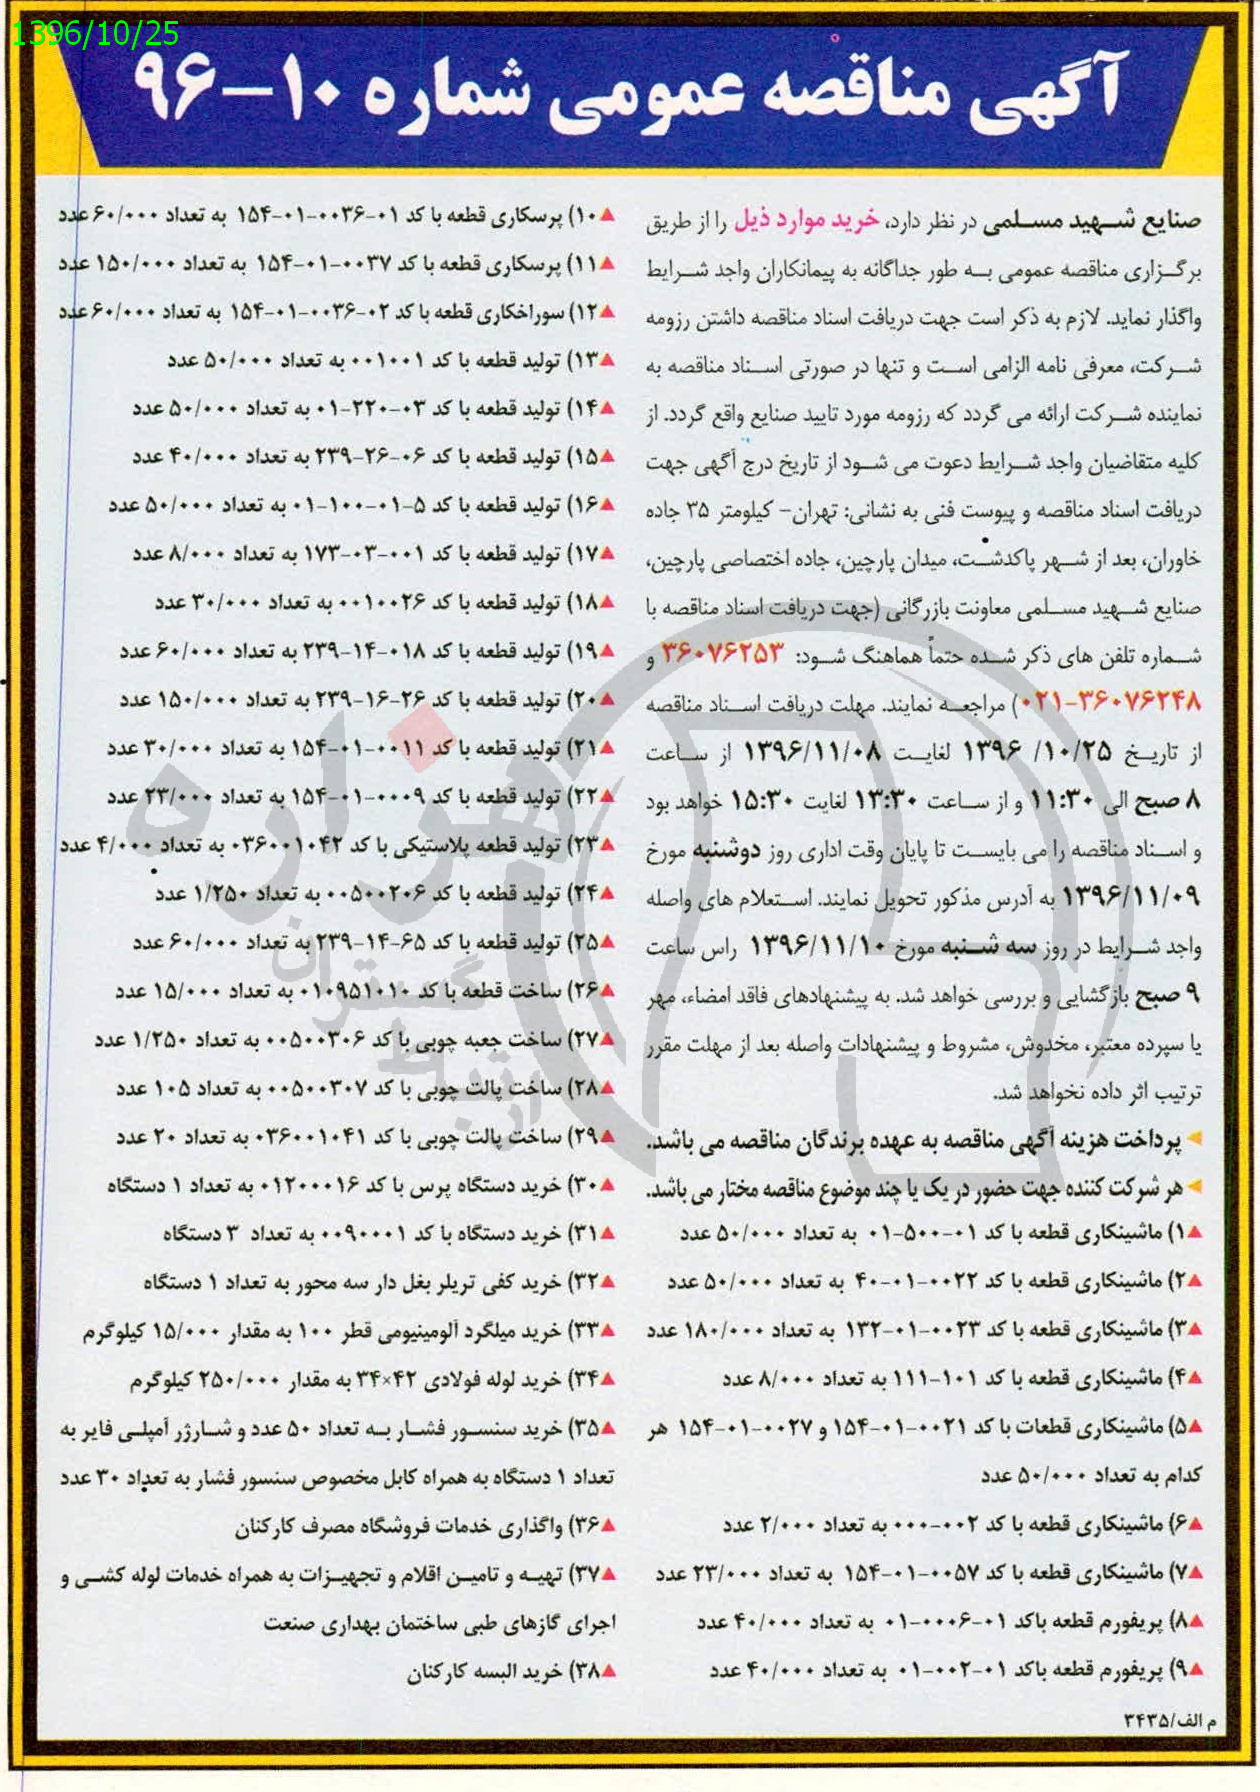 1396/10/25
آگهی مناقصه عمومی شماره ۱۰-۹۶
صنایع شهید مسلمی در نظر دارد، خرید موارد ذیل را از طریق
برگزاری مناقصه عمومی به طور جداگانه به پیمانکاران واجد شرایط
واگذار نماید. لازم به ذکر است جهت دریافت اسناد مناقصه داشتن رزومه
شرکت، معرفی نامه الزامی است و تنها در صورتی اسناد مناقصه به
نماینده شرکت ارائه می گردد که رزومه مورد تایید صنایع واقع گردد. از
کلیه متقاضیان واجد شرایط دعوت می شود از تاریخ درج آگهی جهت
دریافت اسناد مناقصه و پیوست فنی به نشانی: تهران- کیلومتر ۳۵ جاده
خاوران، بعد از شهر پاکدشت، میدان پارچین، جاده اختصاصی پارچین،
صنایع شهید مسلمی معاونت بازرگانی (جهت دریافت اسناد مناقصه با
شماره تلفن های ذکر شده حتماً هماهنگ شود: ۳۶۰۷۶۲۵۳ و
۰۲۱-۳۶۰۷۶۲۴۸) مراجعه نمایند. مهلت دریافت اسناد مناقصه
از تاریخ ۱۳۹۶/۱۰/۲۵ لغایت ۱۳۹۶/۱۱/۰۸ از ساعت
۸ صبح الی ۱۱:۳۰ و از ساعت ۱۳:۳۰ لغایت ۱۵:۳۰ خواهد بود
و اسناد مناقصه را می بایست تا پایان وقت اداری روز دوشنبه مورخ
۱۳۹۶/۱۱/۰۹ به آدرس مذکور تحویل نمایند. استعلام های واصله
واجد شرایط در روز سه شنبه مورخ ۱۳۹۶/۱۱/۱۰ راس ساعت
۹ صبح بازگشایی و بررسی خواهد شد. به پیشنهادهای فاقد امضاء، مهر
یا سپرده معتبر، مخدوش، مشروط و پیشنهادات واصله بعد از مهلت مقرر
ترتیب اثر داده نخواهد شد.
پرداخت هزینه آگهی مناقصه به عهده برندگان مناقصه می باشد.
هر شرکت کننده جهت حضور در یک یا چند موضوع مناقصه مختار می باشد.
۱) ماشینکاری قطعه با کد ۰۱-۵۰۰-۰۱ به تعداد ۵۰/۰۰۰ عدد
۲) ماشینکاری قطعه با کد ۰۰۲۲-۰۱-۴۰ به تعداد ۵۰/۰۰۰ عدد
۳) ماشینکاری قطعه با کد ۰۰۲۳-۰۱-۱۳۲ به تعداد ۱۸۰/۰۰۰ عدد
۴) ماشینکاری قطعه با کد ۱۰۱-۱۱۱ به تعداد ۸/۰۰۰ عدد
۵) ماشینکاری قطعات با کد ۰۰۲۱-۰۱-۱۵۴ و ۰۰۲۷-۰۱-۱۵۴ هر
کدام به تعداد ۵۰/۰۰۰ عدد
۶) ماشینکاری قطعه با کد ۰۰۲-۰۰۰ به تعداد ۲/۰۰۰ عدد
۷) ماشینکاری قطعه با کد ۰۰۵۷-۰۱-۱۵۴ به تعداد ۲۳/۰۰۰ عدد
۸) پریفورم قطعه باکد ۰۱-۰۰۰۶-۰۱ به تعداد ۴۰/۰۰۰ عدد
۹) پریفورم قطعه باکد ۰۱-۰۰۲-۰۱ به تعداد ۴۰/۰۰۰ عدد
م الف/۳۴۳۵
۱۰) پرسکاری قطعه با کد ۰۱-۰۰۳۶-۰۱-۱۵۴ به تعداد ۶۰/۰۰۰ عدد
۱۱) پرسکاری قطعه با کد ۰۰۳۷-۰۱-۱۵۴ به تعداد ۱۵۰/۰۰۰ عدد
۱۲) سوراخکاری قطعه با کد ۰۲-۰۰۳۶-۰۱-۱۵۴ به تعداد ۶۰/۰۰۰ عدد
۱۳) تولید قطعه با کد ۰۰۱۰۰۱ به تعداد ۵۰/۰۰۰ عدد
۱۴) تولید قطعه با کد ۰۳-۲۲۰-۰۱ به تعداد ۵۰/۰۰۰ عدد
۱۵) تولید قطعه با کد ۰۶-۲۶-۲۳۹ به تعداد ۴۰/۰۰۰ عدد
۱۶) تولید قطعه با کد ۵-۰۱-۱۰۰-۰۱ به تعداد ۵۰/۰۰۰ عدد
۱۷) تولید قطعه با کد ۰۰۱-۰۳-۱۷۳ به تعداد ۸/۰۰۰ عدد
۱۸) تولید قطعه با کد ۰۰۱۰۰۲۶ به تعداد ۳۰/۰۰۰ عدد
۱۹) تولید قطعه با کد ۰۱۸-۱۴-۲۳۹ به تعداد ۶۰/۰۰۰ عدد
۲۰) تولید قطعه با کد ۲۶-۱۶-۲۳۹ به تعداد ۱۵۰/۰۰۰ عدد
۲۱) تولید قطعه با کد ۰۰۱۱-۰۱-۱۵۴ به تعداد ۳۰/۰۰۰ عدد
۲۲) تولید قطعه با کد ۰۰۰۹-۰۱-۱۵۴ به تعداد ۲۳/۰۰۰ عدد
۲۳) تولید قطعه پلاستیکی با کد ۰۳۶۰۰۱۰۴۲ به تعداد ۴/۰۰۰ عدد
۲۴) تولید قطعه با کد ۰۰۵۰۰۲۰۶ به تعداد ۱/۲۵۰ عدد
۲۵) تولید قطعه با کد ۶۵-۱۴-۲۳۹ به تعداد ۶۰/۰۰۰ عدد
۲۶) ساخت قطعه با کد ۰۱۰۹۵۱۰۱۰ به تعداد ۱۵/۰۰۰ عدد
۲۷) ساخت جعبه چوبی با کد ۰۰۵۰۰۳۰۶ به تعداد ۱/۲۵۰ عدد
۲۸) ساخت پالت چوبی با کد ۰۰۵۰۰۳۰۷ به تعداد ۱۰۵ عدد
۲۹) ساخت پالت چوبی با کد ۰۳۶۰۰۱۰۴۱ به تعداد ۲۰ عدد
۳۰) خرید دستگاه پرس با کد ۰۱۲۰۰۰۱۶ به تعداد ۱ دستگاه
۳۱) خرید دستگاه با کد ۰۰۹۰۰۰۱ به تعداد ۳ دستگاه
۳۲) خرید کفی تریلر بغل دار سه محور به تعداد ۱ دستگاه
۳۳) خرید میلگرد آلومینیومی قطر ۱۰۰ به مقدار ۱۵/۰۰۰ کیلوگرم
۳۴) خرید لوله فولادی ۴۲×۳۴ به مقدار ۲۵۰/۰۰۰ کیلوگرم
۳۵) خرید سنسور فشار به تعداد ۵۰ عدد و شارژر آمپلی فایر به
تعداد ۱ دستگاه به همراه کابل مخصوص سنسور فشار به تعداد ۳۰ عدد
۳۶) واگذاری خدمات فروشگاه مصرف کارکنان
۳۷) تهیه و تامین اقلام و تجهیزات به همراه خدمات لوله کشی و
اجرای گازهای طبی ساختمان بهداری صنعت
۳۸) خرید البسه کارکنان
هزاره